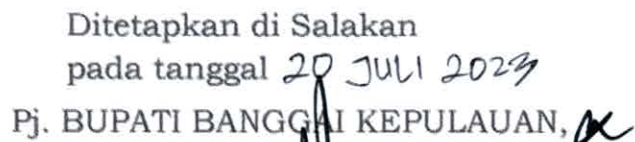 Ditetapkan di Salakan
pada tanggal 20 JULI 2023
Pj. BUPATI BANGGAI KEPULAUAN,